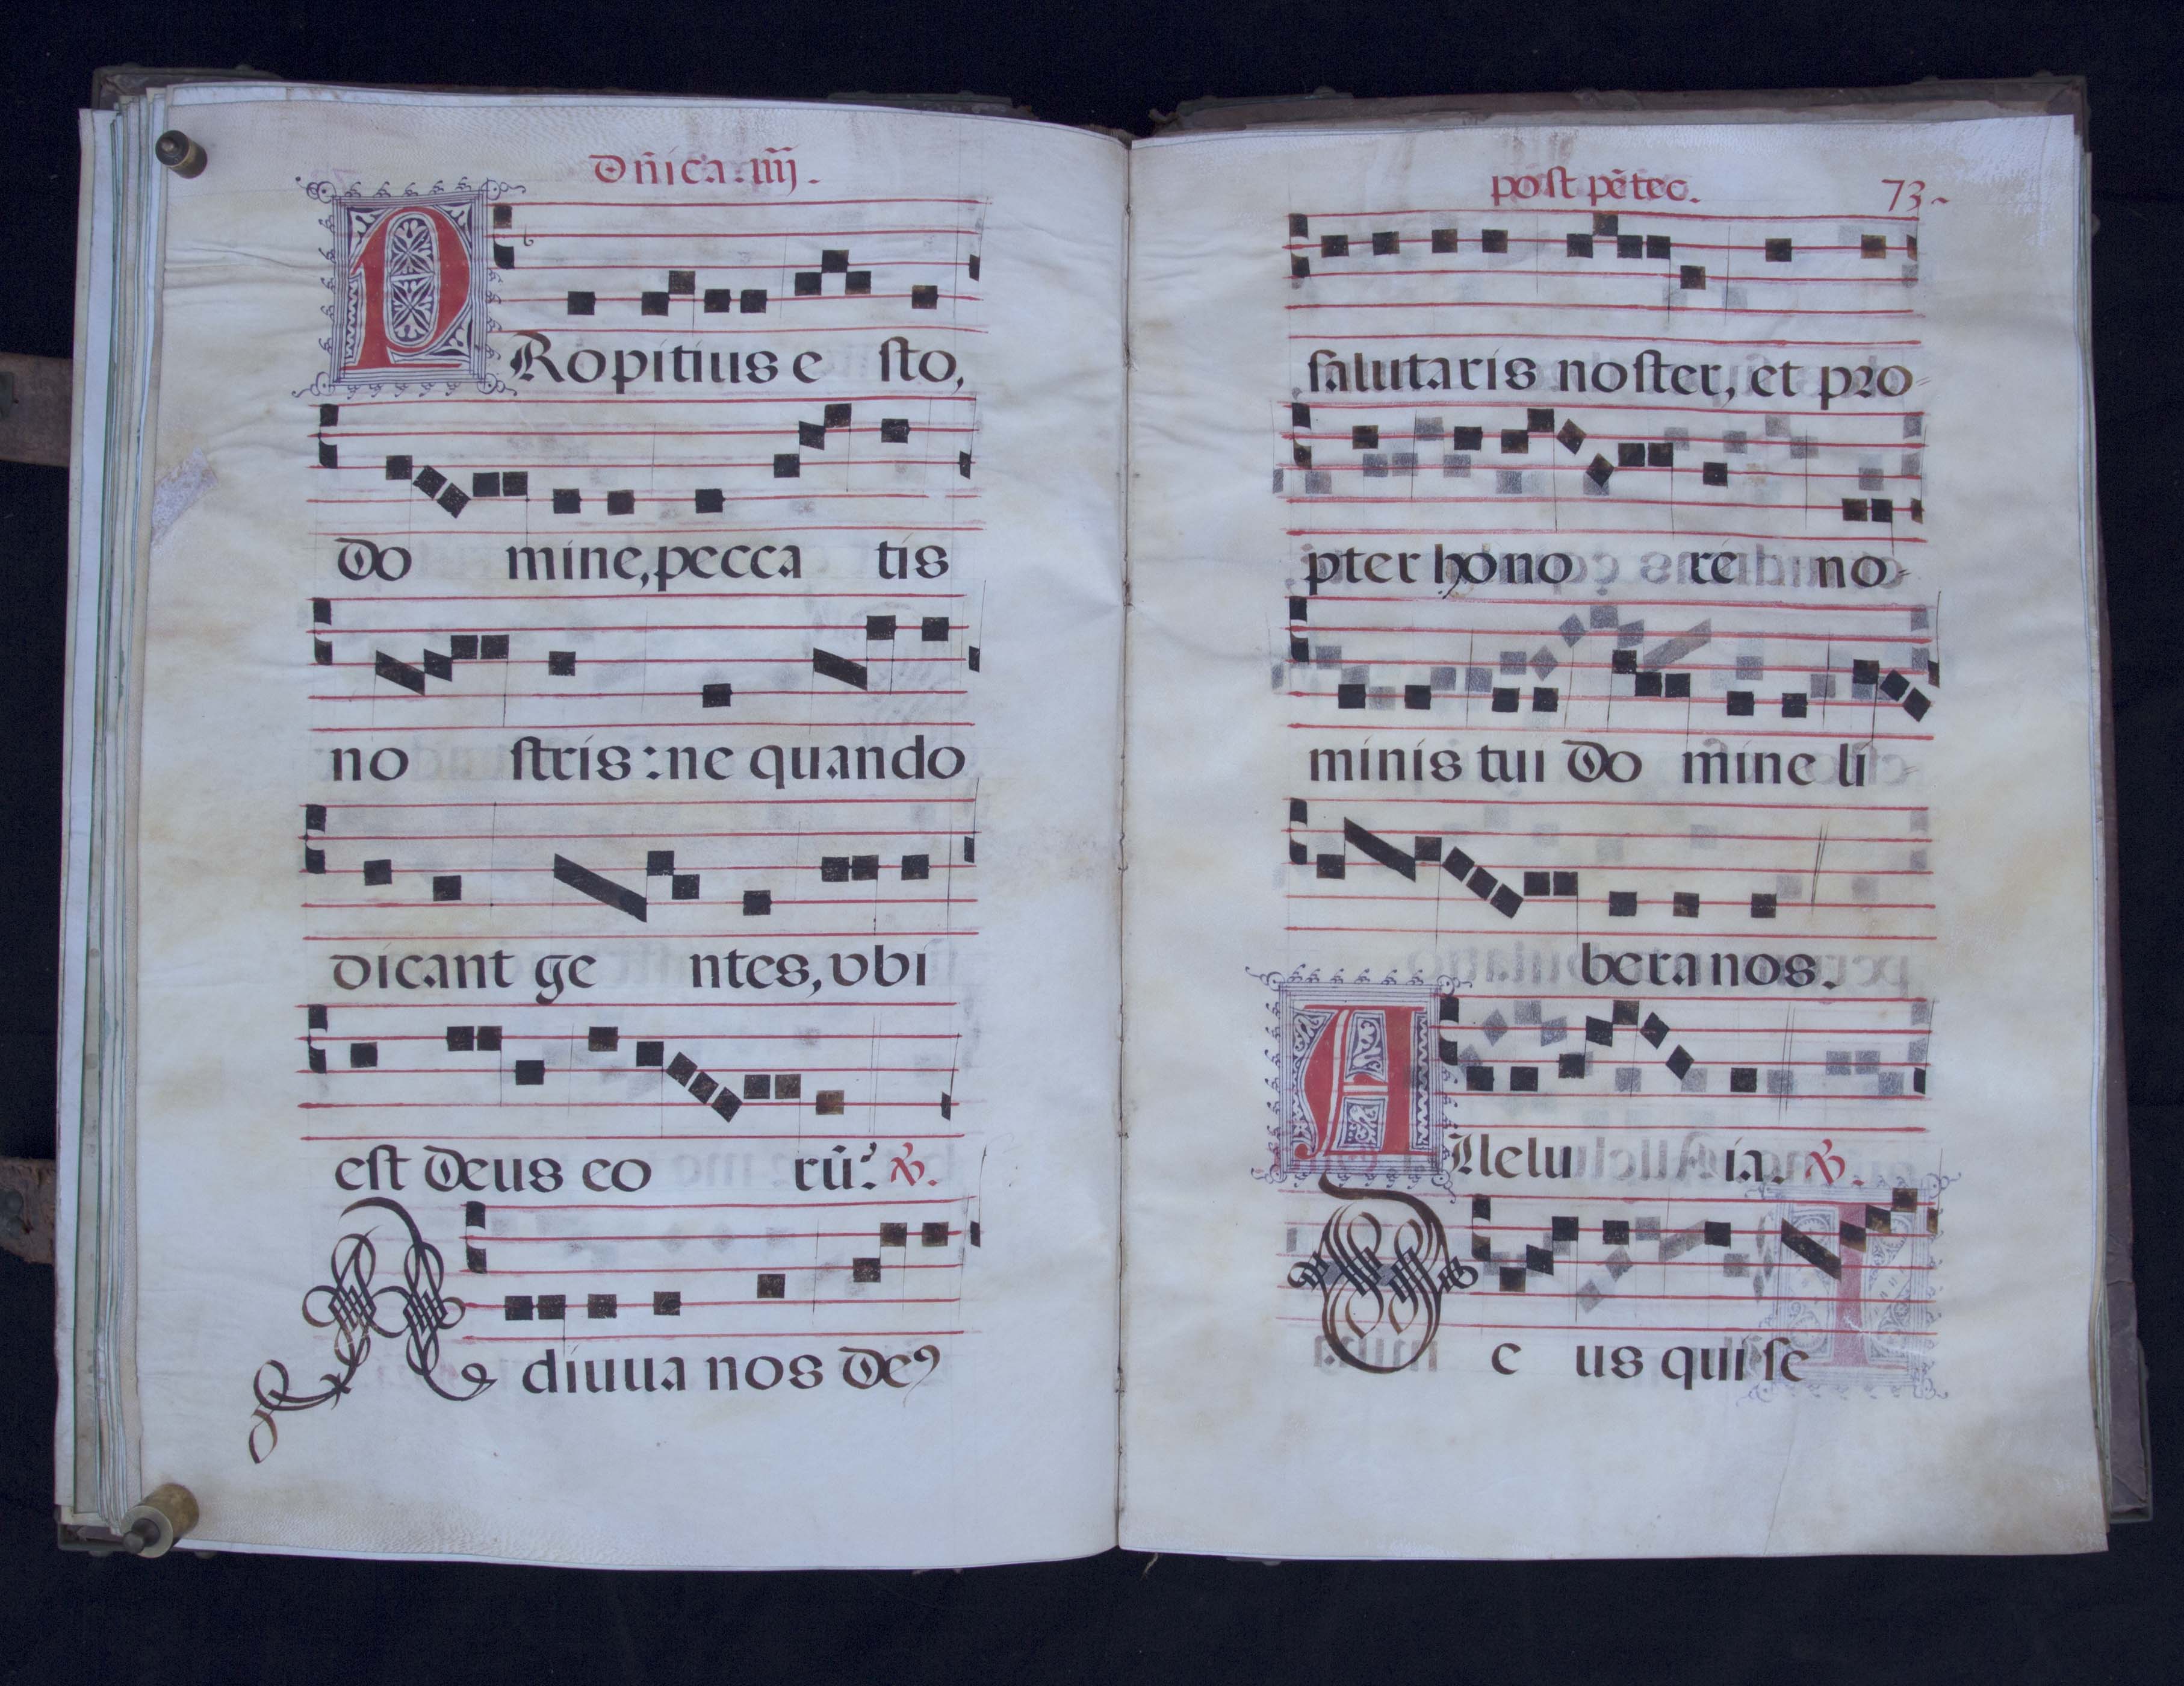 Dñica. iiij.
PRopitius e sto,
Do mine, pecca tis
no stris: ne quando
dicant ge ntes, vbi
est Deus eo rũ? ℣.
A diuua nos De⁹
post pẽtec. 73.
salutaris noster, et pro-
pter hono rẽ no-
minis tui Do mine li-
bera nos.
Allelu ia. ℣.
D e us qui se